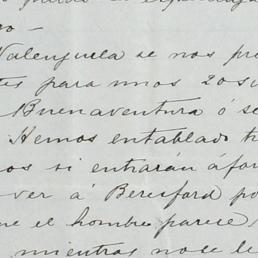 ro –
Valenzuela se nos pre
tes para unos 20
Buenaventura ó se
Hemos entablado
os si entrarán á for
ver á Beresford po
ue el hombre parece
mientras no se le